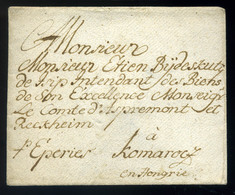 Monsieur
Monsieur Etien Bÿdeskuti
de Ipp Intendant des Biens
de Son Excellence Monseigr
Le Comte d'Aspremont et
Reckheim
à
p Éperies Komarocz
en Hongrie